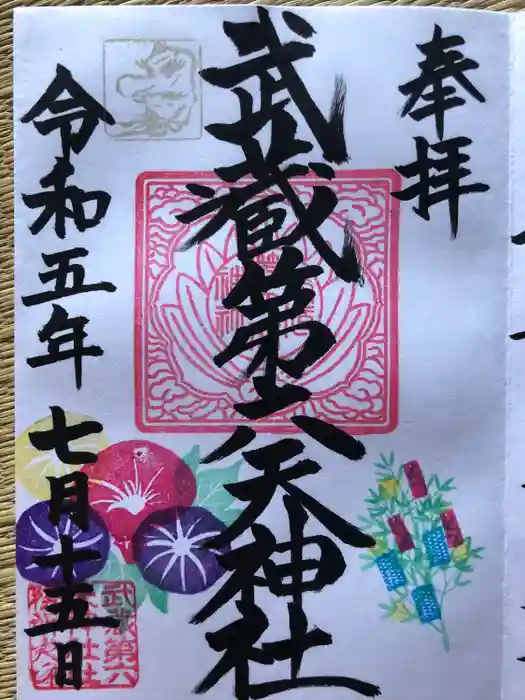 奉拝
武蔵第六天神社
令和五年 七月十五日
武蔵第六